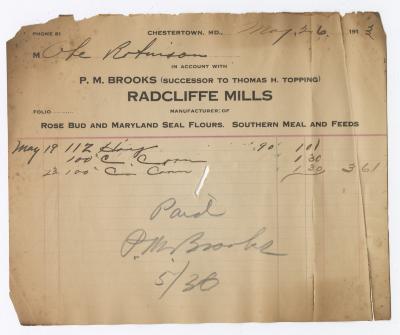 PHONE 81 CHESTERTOWN, MD., May 26 191
M Abe Robinson
IN ACCOUNT WITH
P. M. BROOKS (SUCCESSOR TO THOMAS H. TOPPING)
RADCLIFFE MILLS
FOLIO MANUFACTURER OF
ROSE BUD AND MARYLAND SEAL FLOURS. SOUTHERN MEAL AND FEEDS
May 19 112 Hay 90 1 01
100 C. Corn 1 30
23 100 C. Corn 1 30 3 61
Paid
P. M. Brooks
5/30